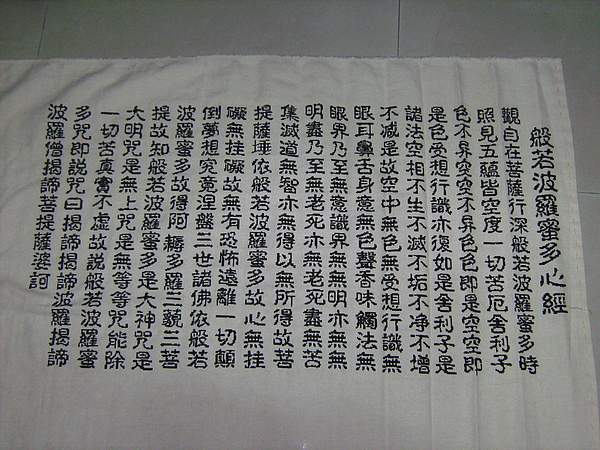 般若波羅蜜多心經
觀自在菩薩行深般若波羅蜜多時
照見五蘊皆空度一切苦厄舍利子
色不異空空不異色色即是空空即
是色受想行識亦復如是舍利子是
諸法空相不生不滅不垢不净不增
不減是故空中無色無受想行識無
眼耳鼻舌身意無色聲香味觸法無
眼界乃至無意識界無無明亦無無
明盡乃至無老死亦無老死盡無苦
集滅道無智亦無得以無所得故菩
提薩埵依般若波羅蜜多故心無挂
礙無挂礙故無有恐怖遠離一切顛
倒夢想究竟涅盤三世諸佛依般若
波羅蜜多故得阿耨多羅三藐三菩
提故知般若波羅蜜多是大神咒是
大明咒是無上咒是無等等咒能除
一切苦真實不虛故説般若波羅蜜
多咒即説咒曰揭諦揭諦波羅揭諦
波羅僧揭諦菩提薩婆訶